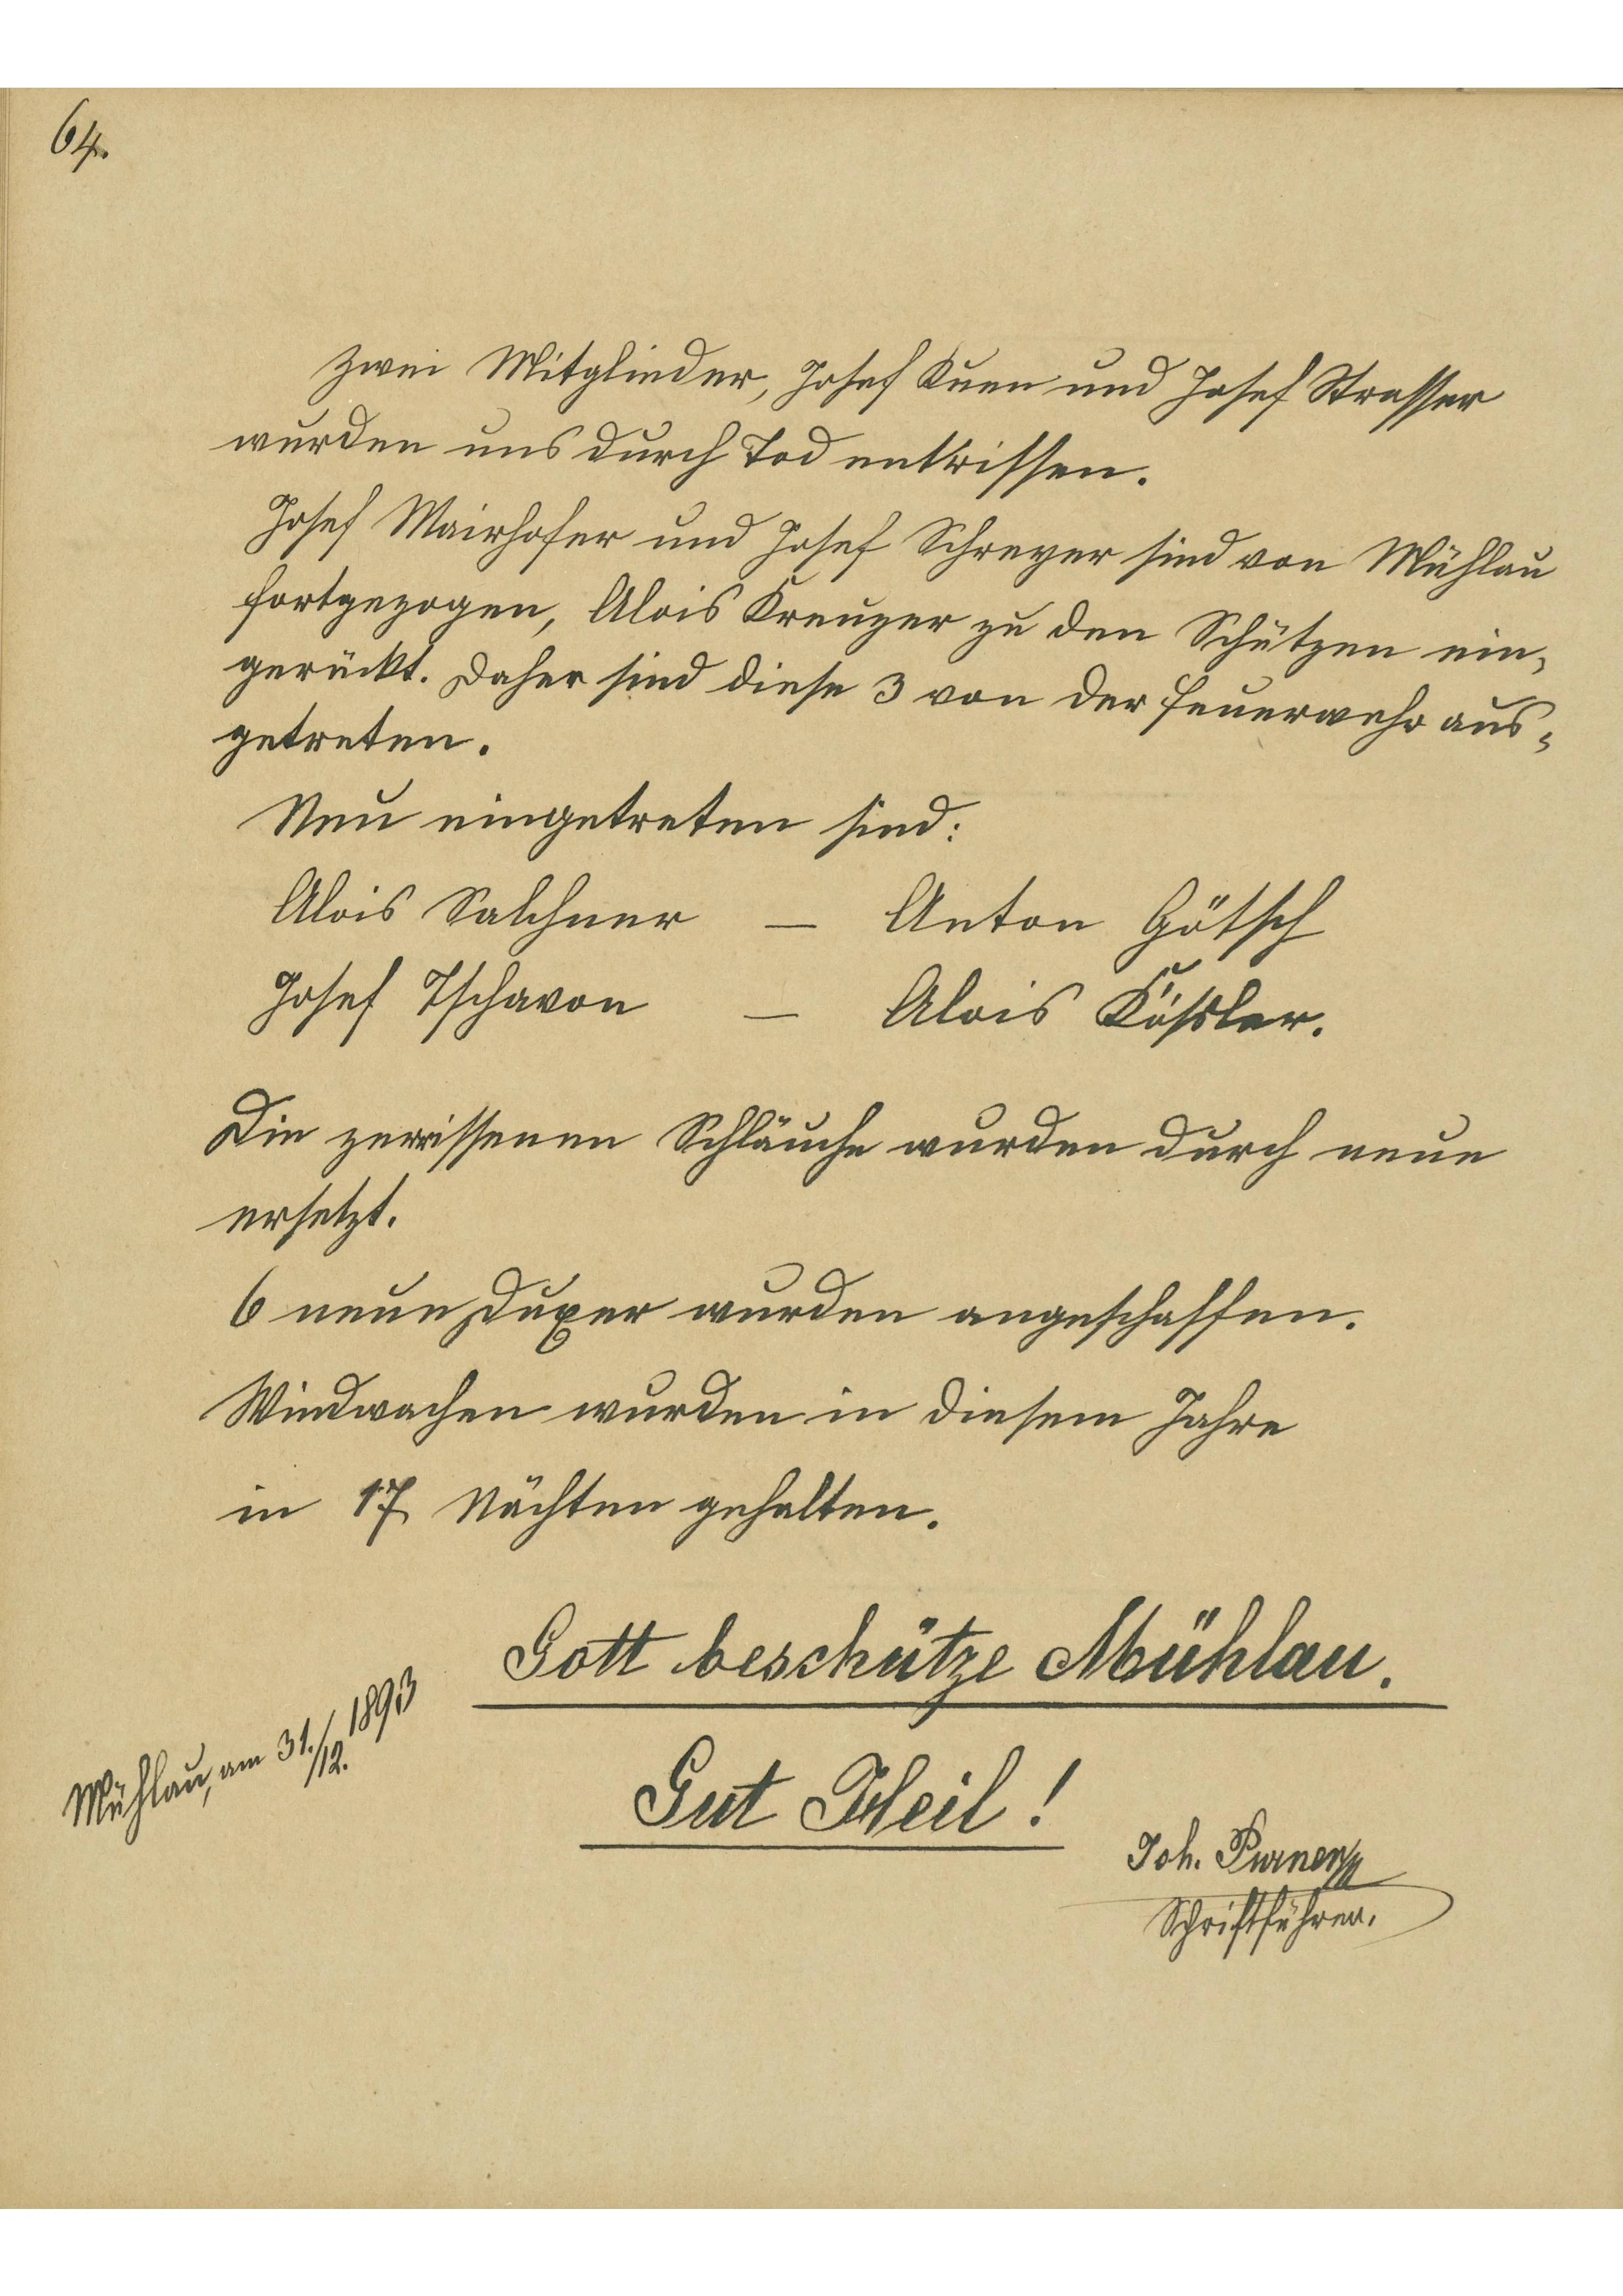 64.
Zwei Mitglieder, Josef Kuen und Josef Strasser
wurden uns durch Tod entrissen.
Josef Mairhofer und Josef Schreyer sind von Mühlau
fortgezogen, Alois Kreuzer zu den Schützen ein-
gerückt. Daher sind diese 3 von der Feuerwehr aus-
getreten.
Neu eingetreten sind:
Alois Salchner — Anton Götsch
Josef Tschavon — Alois Kößler.
Die zerrissenen Schläuche wurden durch neue
ersetzt.
6 neue Duxer wurden angeschaffen.
Windwachen wurden in diesem Jahre
in 17 Nächten gehalten.
Gott beschütze Mühlau.
Mühlau, am 31./12. 1893
Gut Heil!
Joh.
Schriftführer.